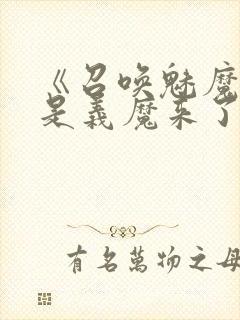 《召唤魅魔
是義魔来了
有名萬物之母